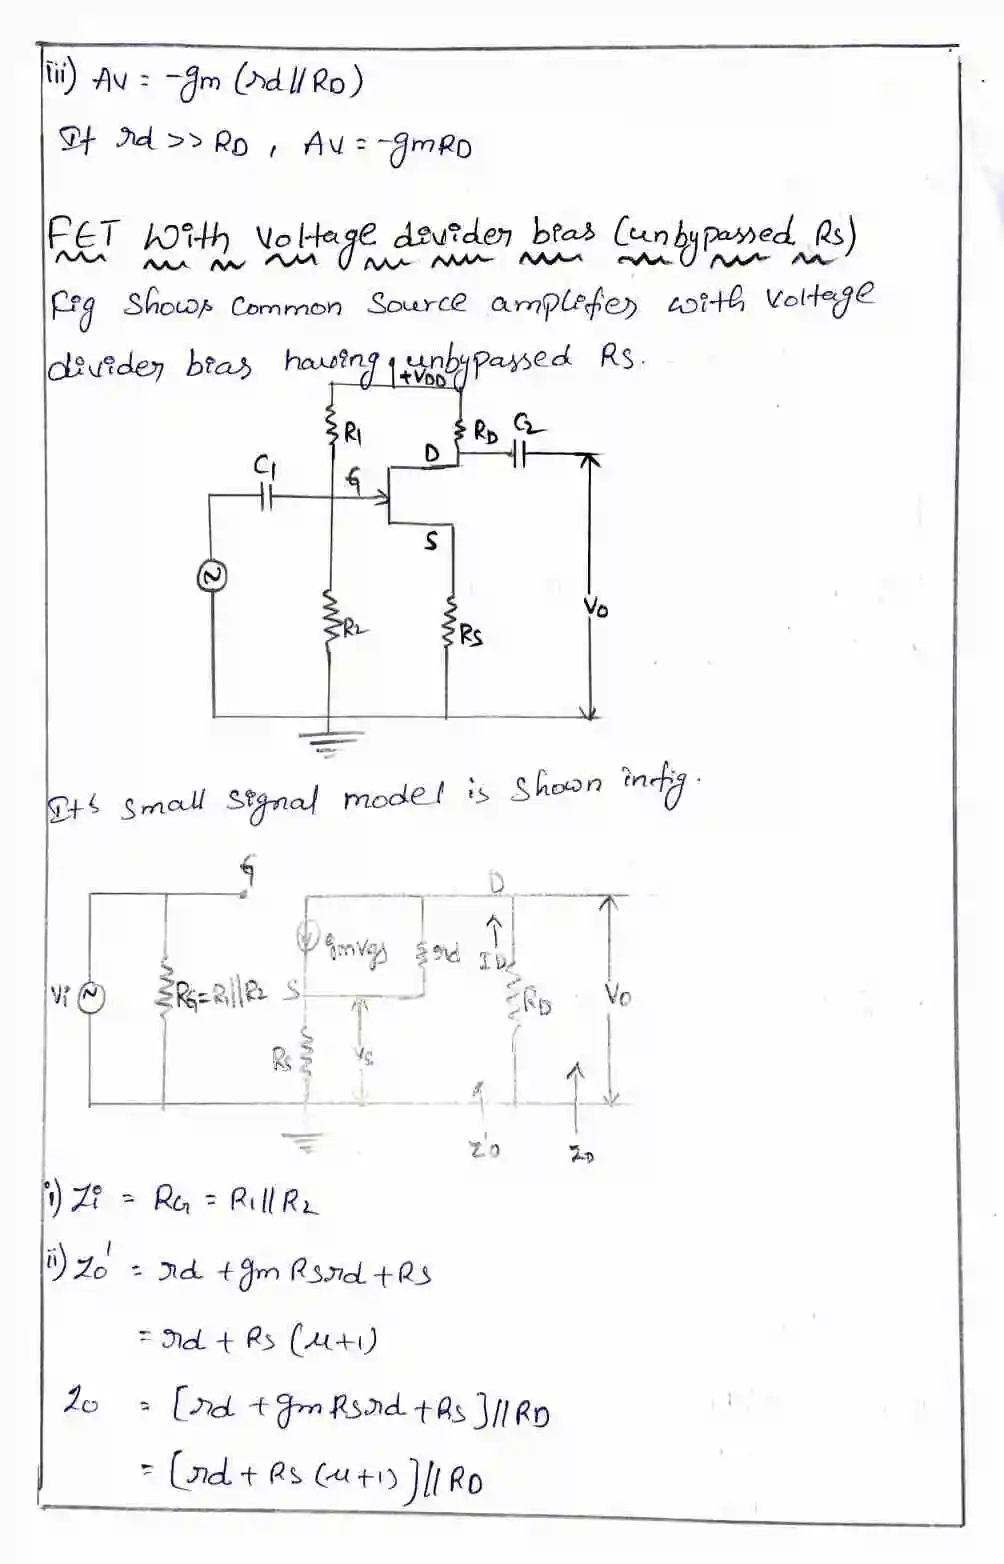 iii) AV = -gm (rd || RD)
If rd >> RD , AV = -gmRD
FET With Voltage divider bias (unbypassed Rs)
Fig Shows Common Source amplifier with Voltage
divider bias having unbypassed Rs.
+VDD
R1
RD
C2
D
C1
G
S
R2
RS
Vo
Its small signal model is shown in fig.
G
D
gmvgs
rd
ID
Vi
RG=R1||R2
S
RD
Vo
Rs
Vs
Z'o
Zo
i) Zi = RG = R1 || R2
ii) Zo' = rd + gm Rsrd + Rs
= rd + Rs (μ+1)
Zo = [rd + gm Rsrd + Rs] || RD
= [rd + Rs (μ+1)] || RD